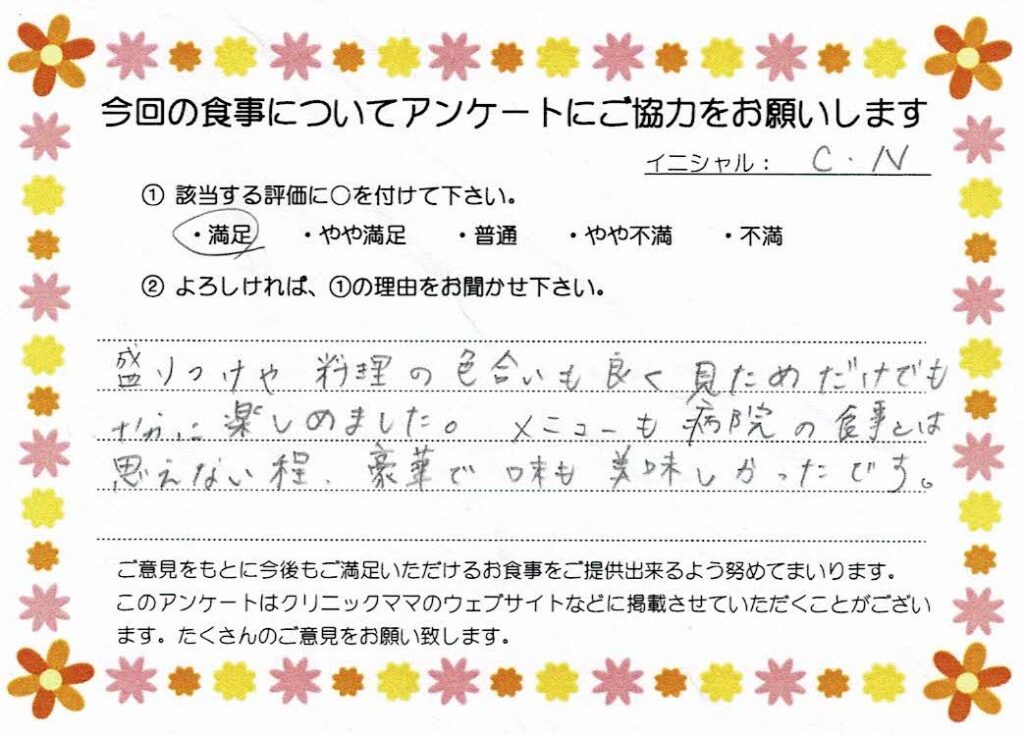 今回の食事についてアンケートにご協力をお願いします
イニシャル： C・N
① 該当する評価に○を付けて下さい。
・満足 ・やや満足 ・普通 ・やや不満 ・不満
② よろしければ、①の理由をお聞かせ下さい。
盛りつけや 料理の色合いも良く 見ためだけでも
楽しめました。 メニューも 病院の食事とは
思えない程、豪華で 味も 美味しかったです。
ご意見をもとに今後もご満足いただけるお食事をご提供出来るよう努めてまいります。
このアンケートはクリニックママのウェブサイトなどに掲載させていただくことがござい
ます。たくさんのご意見をお願い致します。